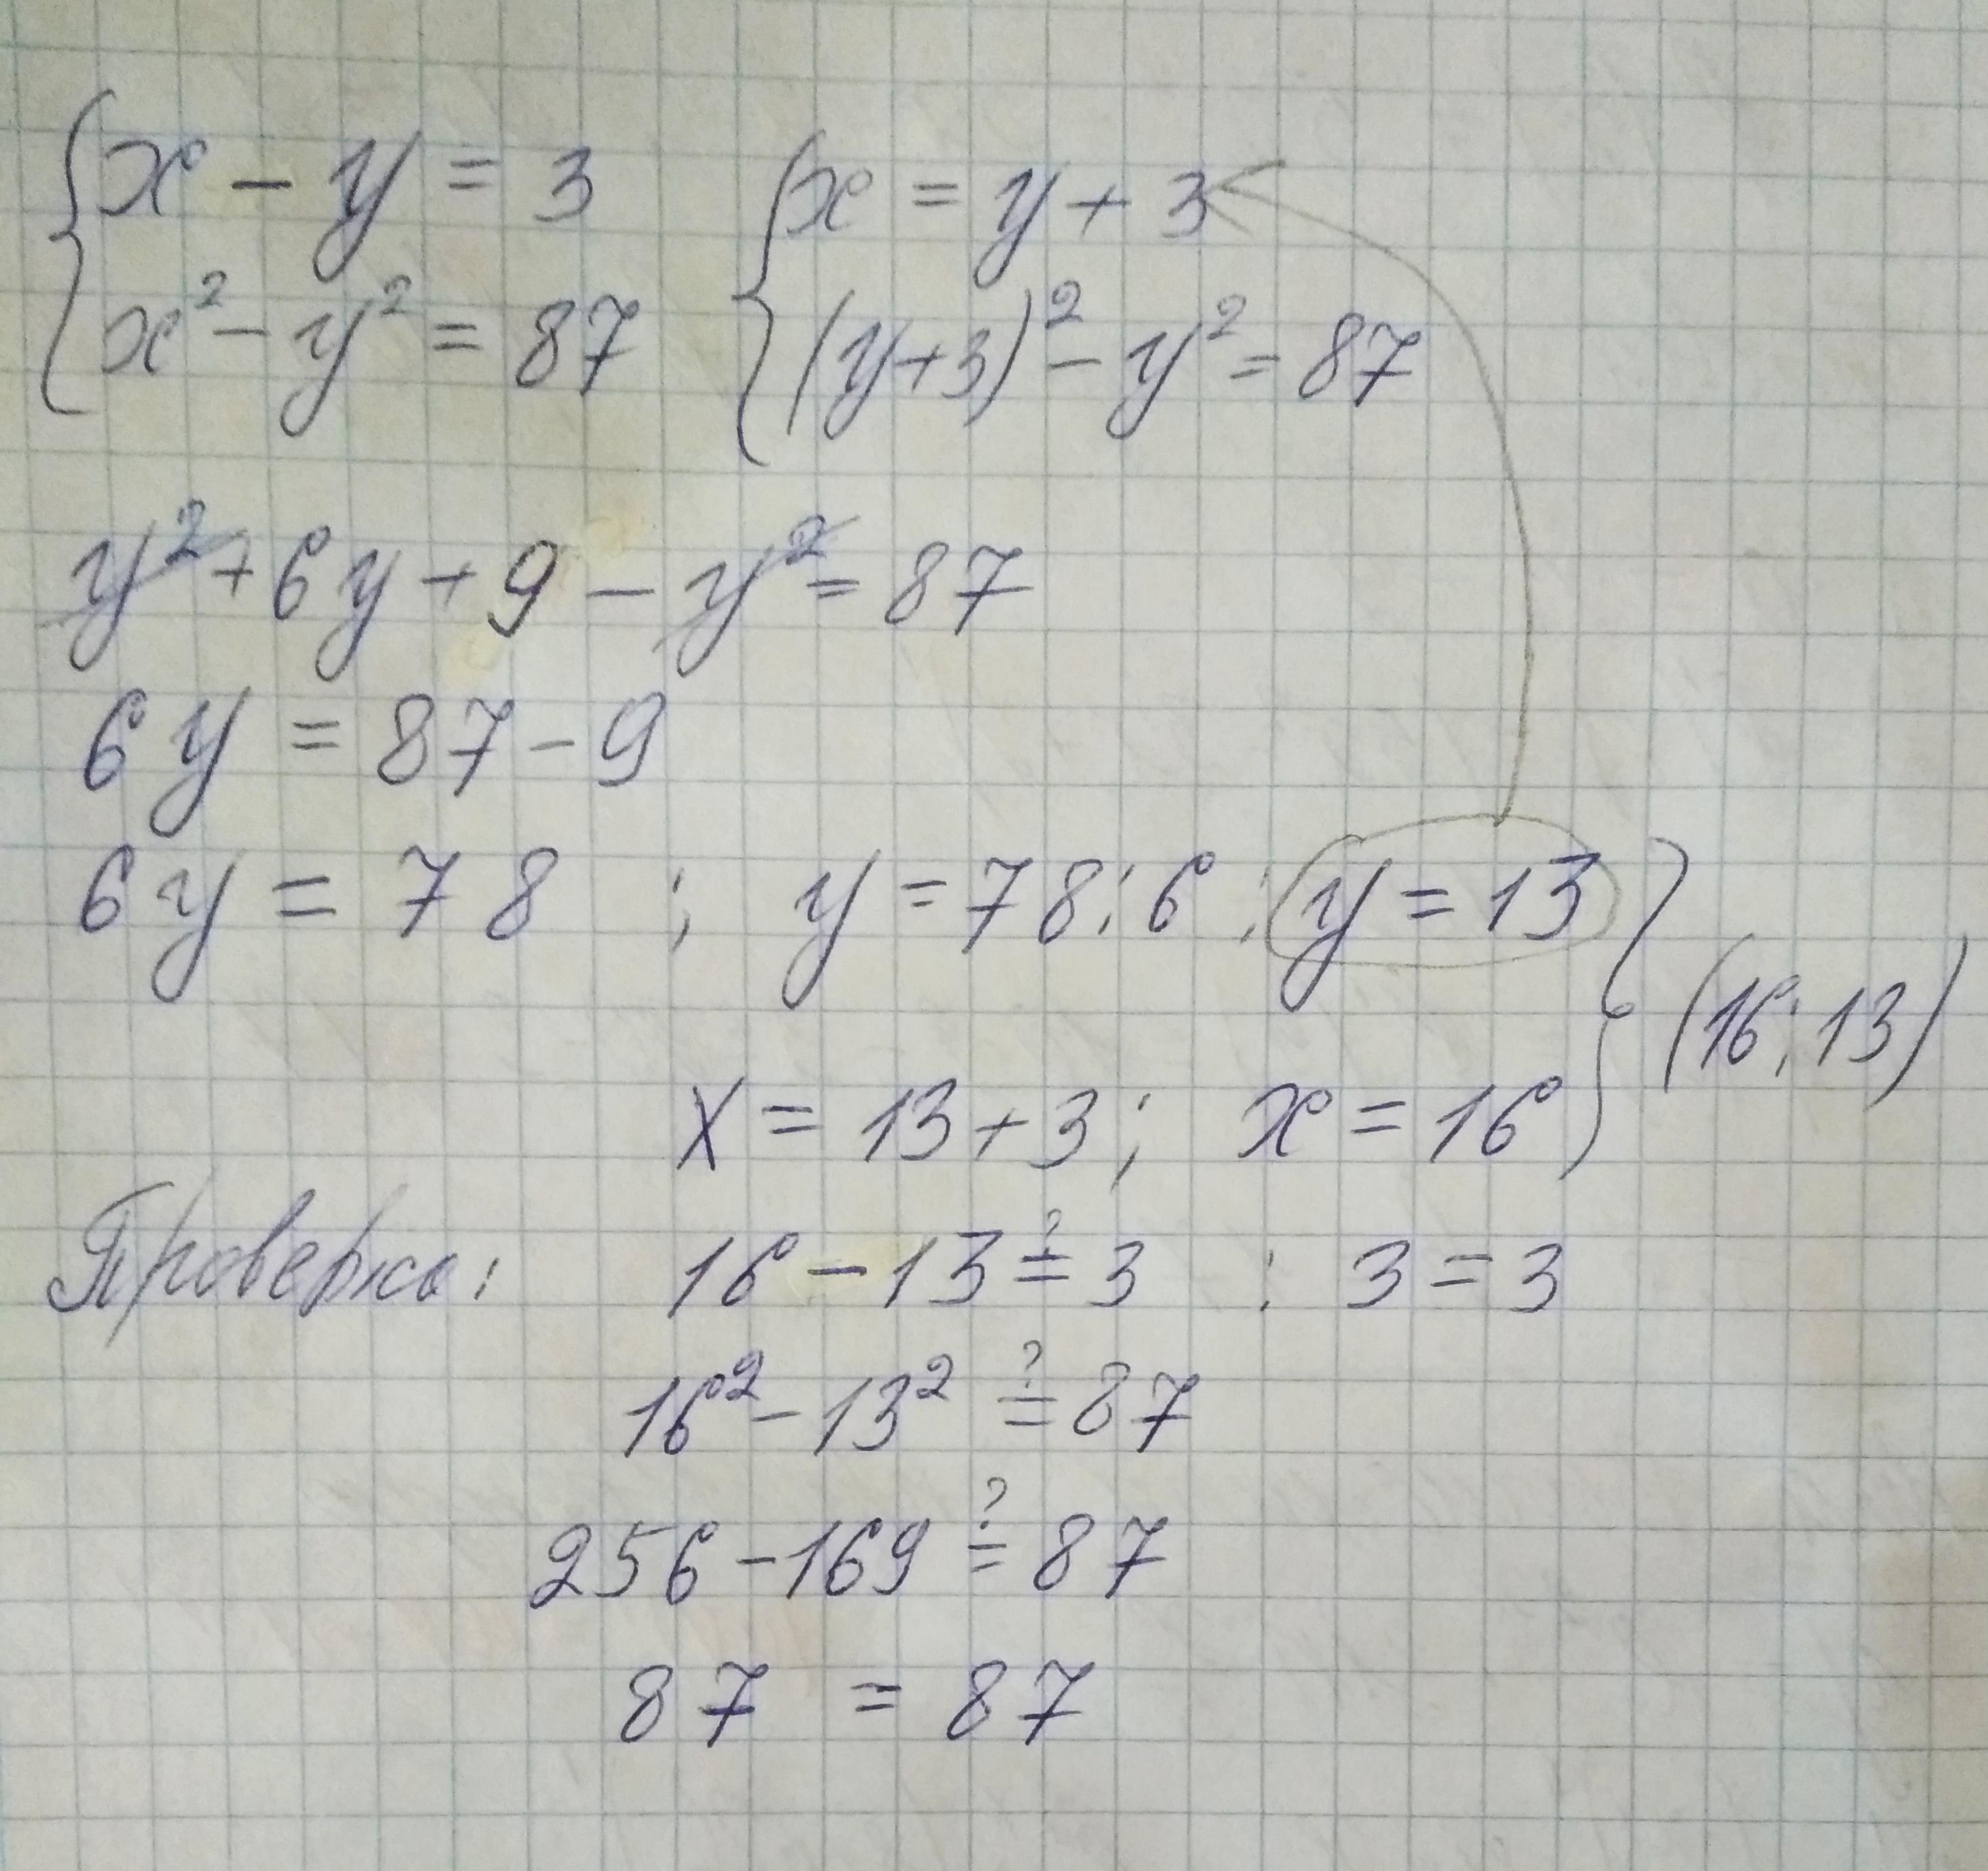 x - y = 3   x = y + 3
x² - y² = 87   (y+3)² - y² = 87
y² + 6y + 9 - y² = 87
6y = 87 - 9
6y = 78 ; y = 78 : 6 ; y = 13
(16; 13)
x = 13 + 3 ; x = 16
Проверка: 16 - 13 ≟ 3 ; 3 = 3
16² - 13² ≟ 87
256 - 169 ≟ 87
87 = 87